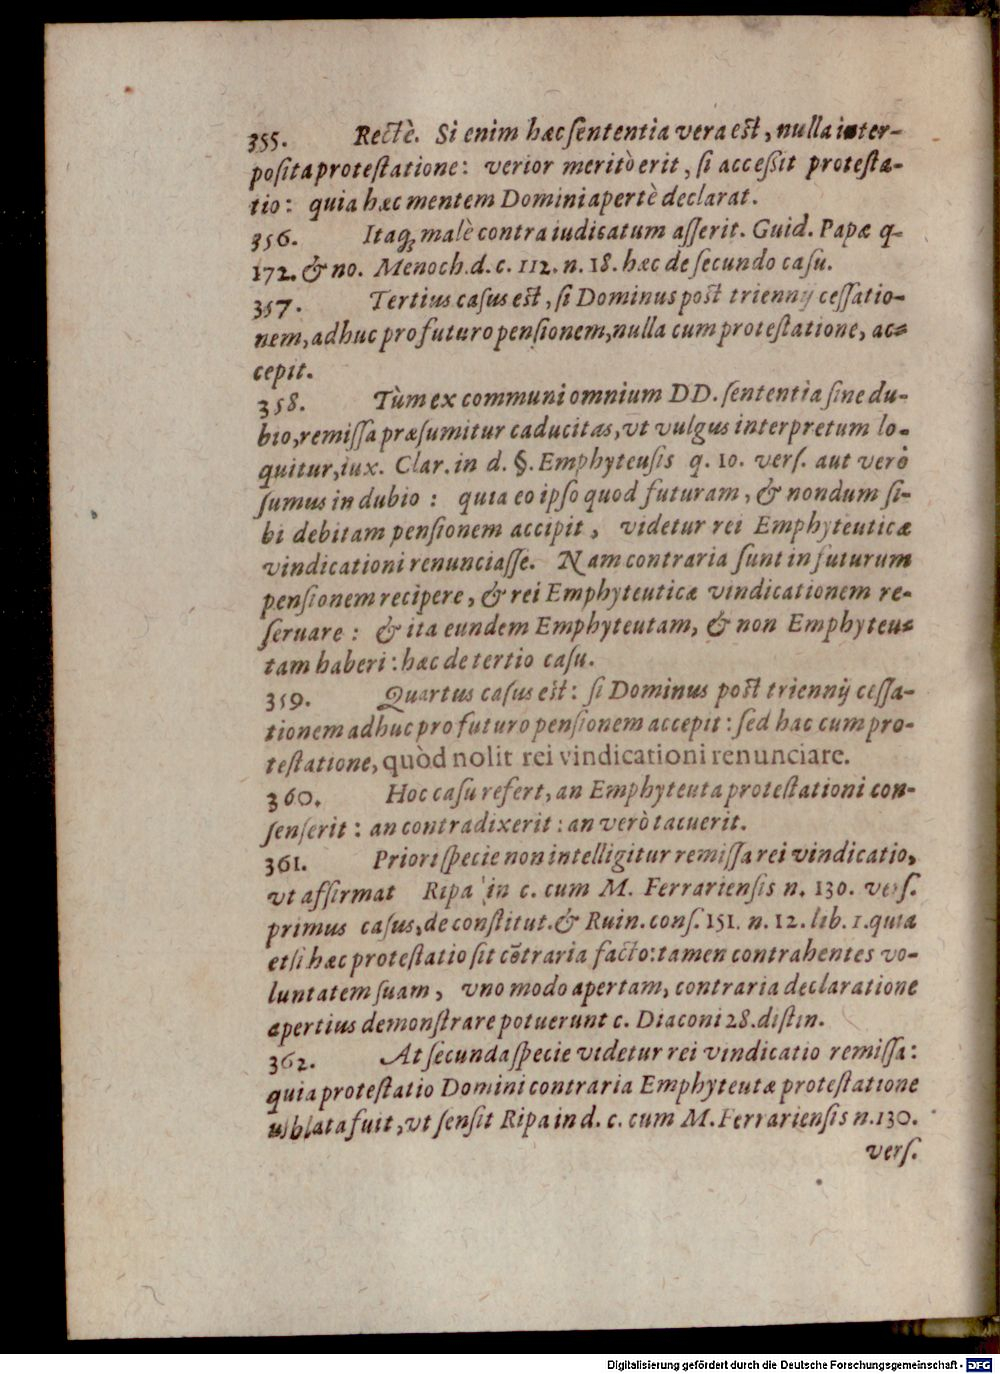 355. Rectè. Si enim hæc sententia vera est, nulla inter-
posita protestatione: verior meritò erit, si acceßit protesta-
tio: quia hæc mentem Domini apertè declarat.
356. Itaq; malè contra iudicatum asserit. Guid. Papæ q.
172. & no. Menoch. d. c. 112. n. 18. hæc de secundo casu.
357. Tertius casus est, si Dominus post triennij cessatio-
nem, adhuc pro futuro pensionem, nulla cum protestatione, ac-
cepit.
358. Tùm ex communi omnium DD. sententia sine du-
bio, remissa præsumitur caducitas, vt vulgus interpretum lo-
quitur, iux. Clar. in d. §. Emphyteusis q. 10. vers. aut verò
sumus in dubio: quia eo ipso quod futuram, & nondum si-
bi debitam pensionem accipit, videtur rei Emphyteuticæ
vindicationi renunciasse. Nam contraria sunt in futurum
pensionem recipere, & rei Emphyteuticæ vindicationem re-
seruare: & ita eundem Emphyteutam, & non Emphyteu-
tam haberi: hæc de tertio casu.
359. Quartus casus est: si Dominus post triennij cessa-
tionem adhuc pro futuro pensionem accepit: sed hac cum pro-
testatione, quòd nolit rei vindicationi renunciare.
360. Hoc casu refert, an Emphyteuta protestationi con-
senserit: an contradixerit: an verò tacuerit.
361. Priori specie non intelligitur remissa rei vindicatio,
vt affirmat Ripa in c. cum M. Ferrariensis n. 130. vers.
primus casus, de constitut. & Ruin. cons. 151. n. 12. lib. 1. quia
etsi hæc protestatio sit cõtraria facto: tamen contrahentes vo-
luntatem suam, vno modo apertam, contraria declaratione
apertius demonstrare potuerunt c. Diaconi 28. distin.
362. At secunda specie videtur rei vindicatio remissa:
quia protestatio Domini contraria Emphyteutæ protestatione
sublata fuit, vt sensit Ripa in d. c. cum M. Ferrariensis n. 130.
vers.
Digitalisierung gefördert durch die Deutsche Forschungsgemeinschaft - DFG